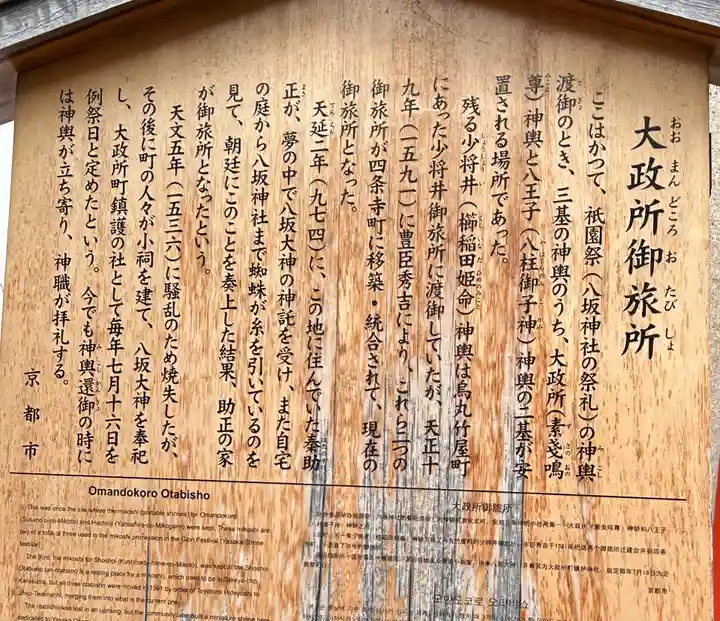 大政所御旅所
ここはかつて、祇園祭(八坂神社の祭礼)の神輿
渡御のとき、三基の神輿のうち、大政所(素戔鳴
尊)神輿と八王子(八柱御子神)神輿の二基が安
置される場所であった。
残る少将井(櫛稲田姫命)神輿は烏丸竹屋町
にあった少将井御旅所に渡御していたが、天正十
九年(一五九一)に豊臣秀吉により、これら二つの
御旅所が四条寺町に移築・統合されて、現在の
御旅所となった。
天延二年(九七四)に、この地に住んでいた秦助
正が、夢の中で八坂大神の神託を受け、また自宅
の庭から八坂神社まで蜘蛛が糸を引いているのを
見て、朝廷にこのことを奏上した結果、助正の家
が御旅所となったという。
天文五年(一五三六)に騒乱のため焼失したが、
その後に町の人々が小祠を建て、八坂大神を奉祀
し、大政所町鎮護の社として毎年七月十六日を
例祭日と定めたという。今でも神輿還御の時に
は神輿が立ち寄り、神職が拝礼する。
京都市
Omandokoro Otabisho
This was once the site where the mikoshi (portable shrines) for Omandokoro
(Susuno-o-no-Mikoto) and Hachioji (Yahashira-no-Mikogami) were kept. These mikoshi are
two of a total of three used in the mikoshi procession in the Gion Festival (Yasaka Shrine
festival).
The third, the mikoshi for Shoshoi (Kushinada-hime-no-Mikoto), was kept at the Shoshoi
Otabisho (an otabisho is a resting place for a mikoshi), which used to be in Takeya-cho,
Karasuma, but all three otabisho were moved in 1591 by order of Toyotomi Hideyoshi to
Shijo-Teramachi, merging them into what is the current one.
The otabisho was lost in an uprising, but the community later built a miniature shrine here
大政所御旅所
京都市
오만도코로 오타비쇼